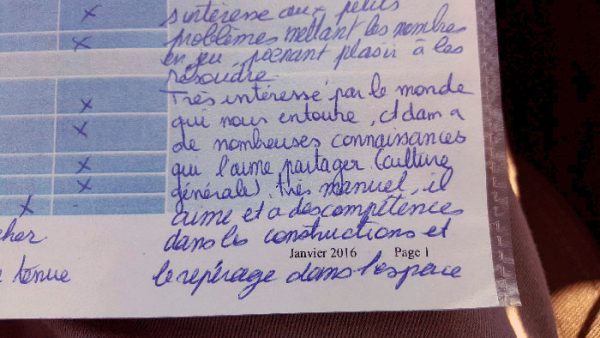 s'intéresse aux petits
problèmes mettant les nombres
en jeu, prenant plaisir à les
résoudre
Très intéressé par le monde
qui nous entoure, Adam a
de nombreuses connaissances
qu'il aime partager (culture
générale). Très manuel, il
aime et a des compétences
dans les constructions et
Janvier 2016 Page 1
le repérage dans l'espace
cher
tenue